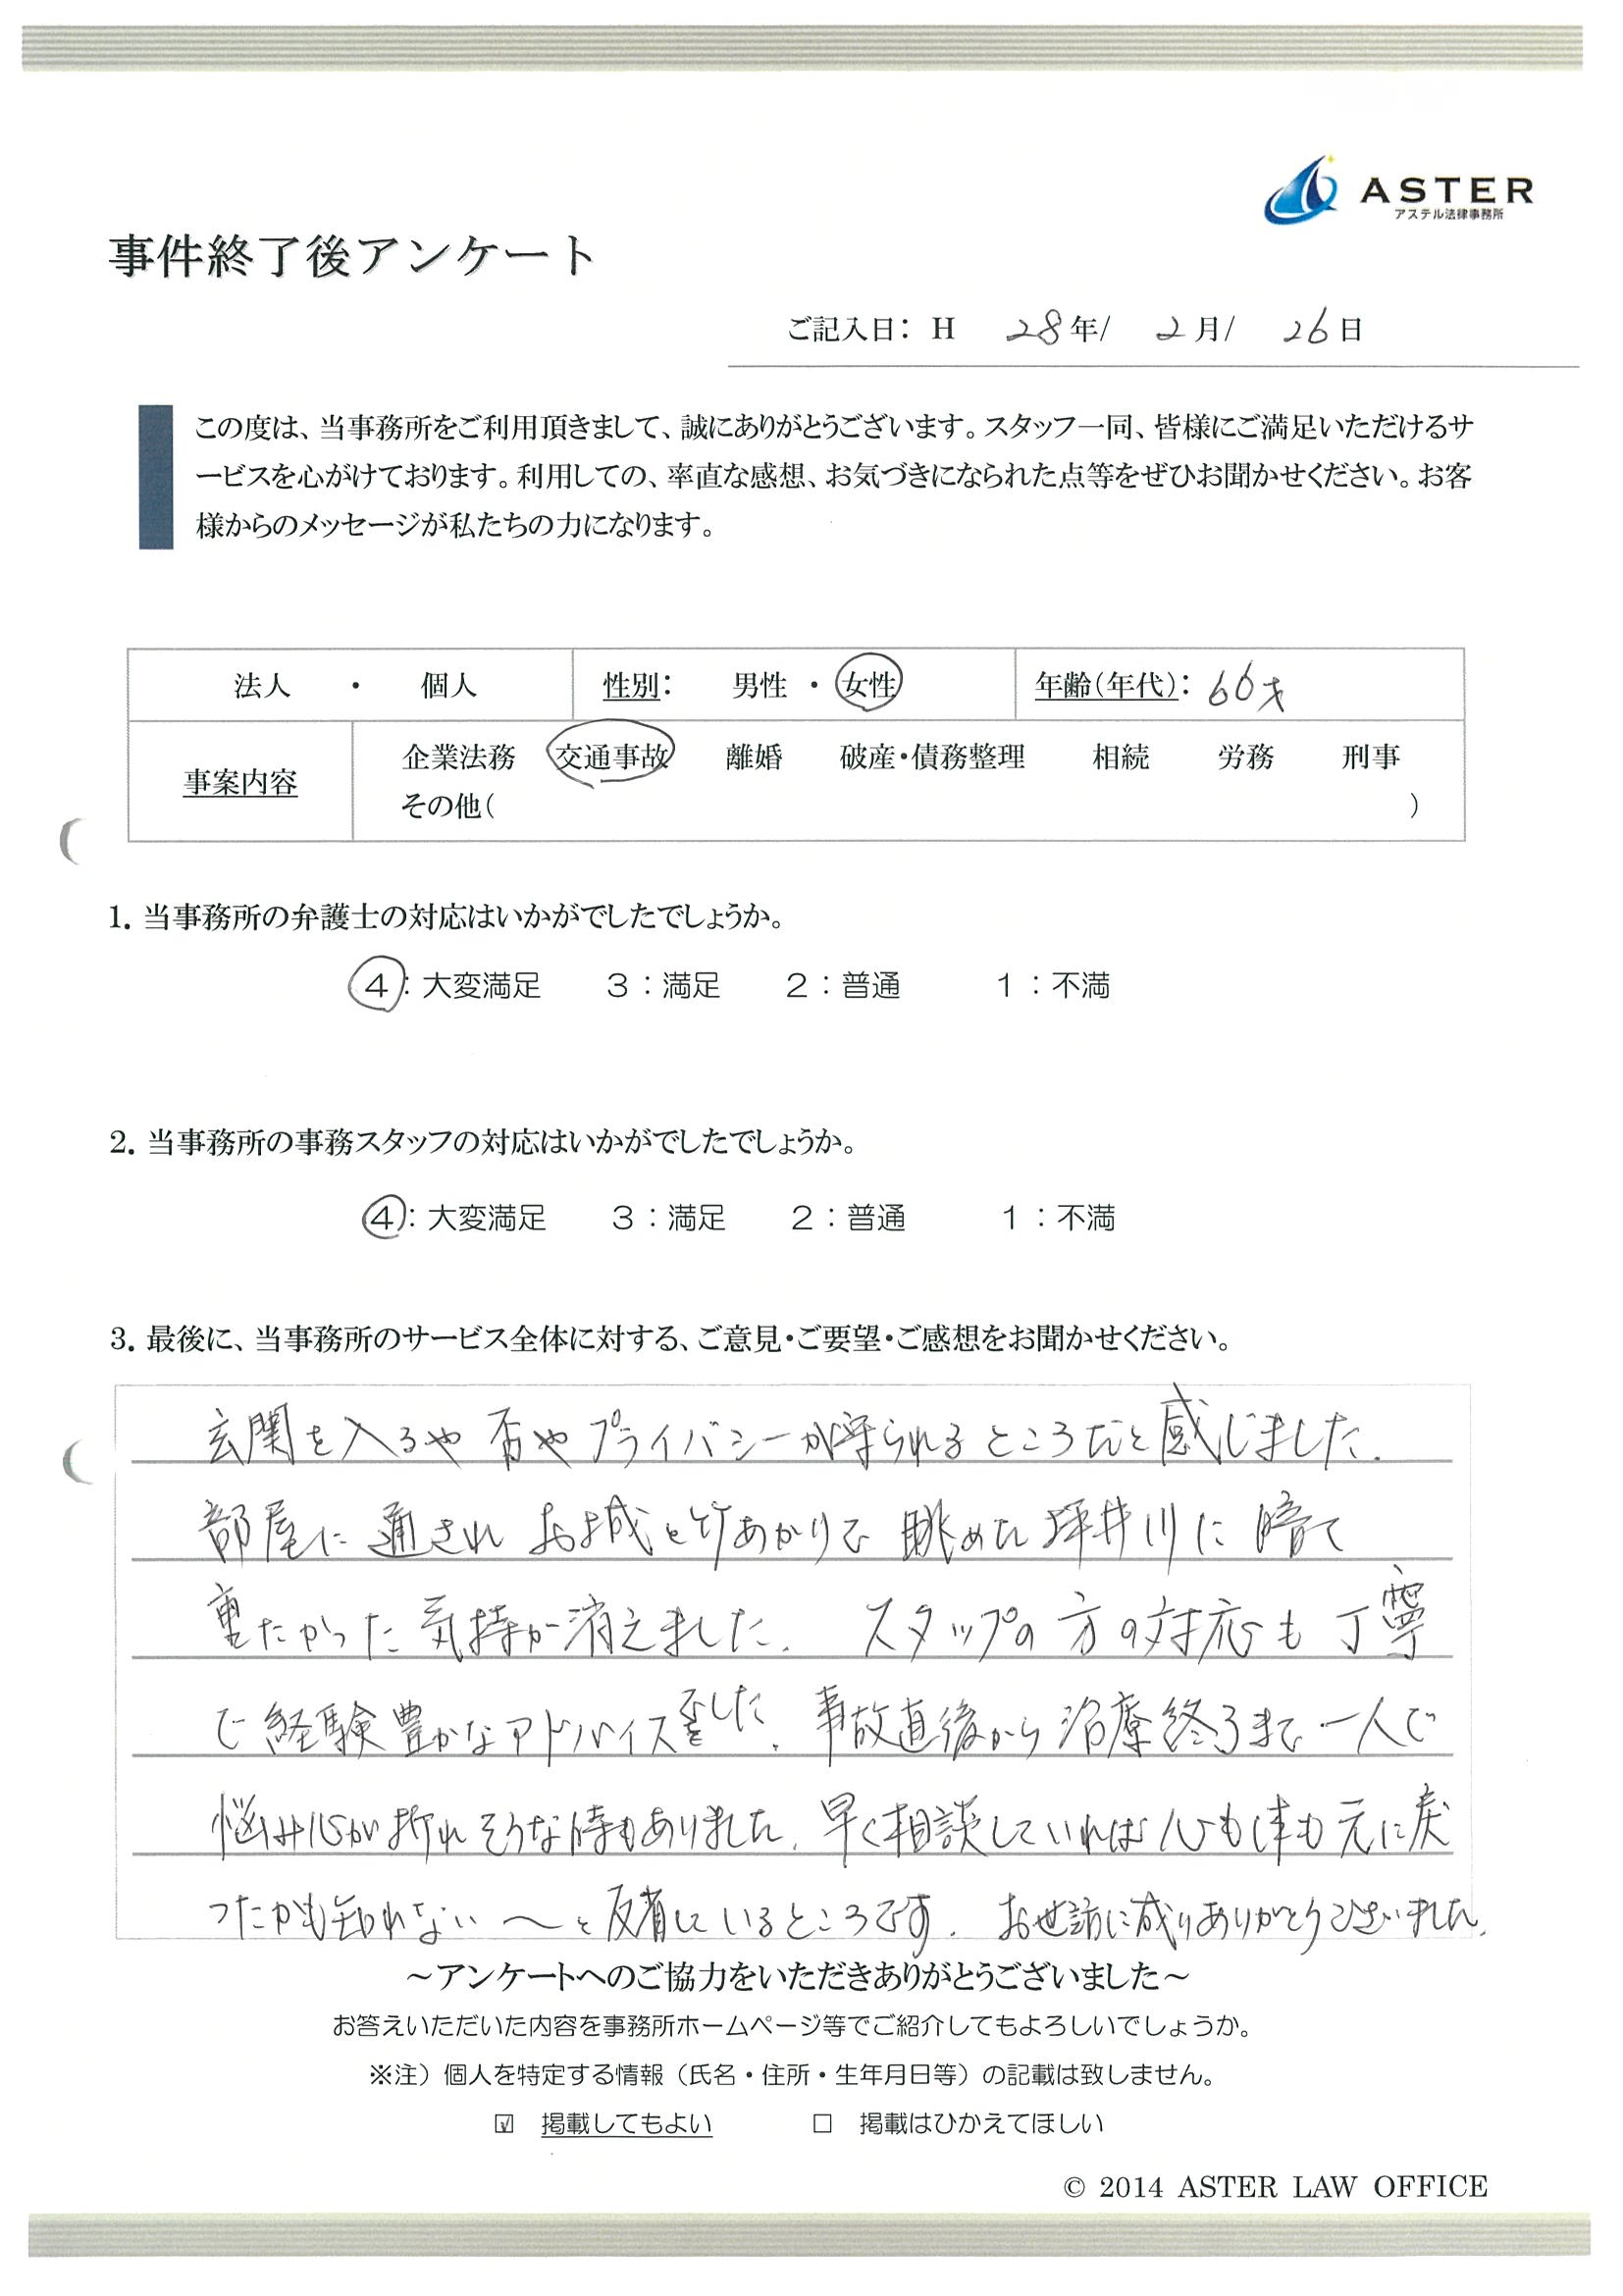 ASTER
アステル法律事務所
事件終了後アンケート
ご記入日： H 28年/ 2月/ 26日
この度は、当事務所をご利用頂きまして、誠にありがとうございます。スタッフ一同、皆様にご満足いただけるサ
ービスを心がけております。利用しての、率直な感想、お気づきになられた点等をぜひお聞かせください。お客
様からのメッセージが私たちの力になります。
法人 ・ 個人 性別： 男性 ・ 女性 年齢（年代）： 66才
事案内容 企業法務 交通事故 離婚 破産・債務整理 相続 労務 刑事
その他（ ）
1. 当事務所の弁護士の対応はいかがでしたでしょうか。
4：大変満足 3：満足 2：普通 1：不満
2. 当事務所の事務スタッフの対応はいかがでしたでしょうか。
4：大変満足 3：満足 2：普通 1：不満
3. 最後に、当事務所のサービス全体に対する、ご意見・ご要望・ご感想をお聞かせください。
玄関を入るや否やプライバシーが守られるところだと感じました.
部屋に通されお城と竹あかりで眺めた坪井川に暗て
重たかった気持が消えました. スタップの方の対応も丁寧
で経験豊かなアドバイスでした. 事故直後から治療終了まで一人で
悩み心が折れそうな時もありました. 早く相談していれば心も体も元に戻
ったかも知れない～と反省しているところです. お世話に成りありがとうございました.
～アンケートへのご協力をいただきありがとうございました～
お答えいただいた内容を事務所ホームページ等でご紹介してもよろしいでしょうか。
※注）個人を特定する情報（氏名・住所・生年月日等）の記載は致しません。
☑ 掲載してもよい □ 掲載はひかえてほしい
© 2014 ASTER LAW OFFICE